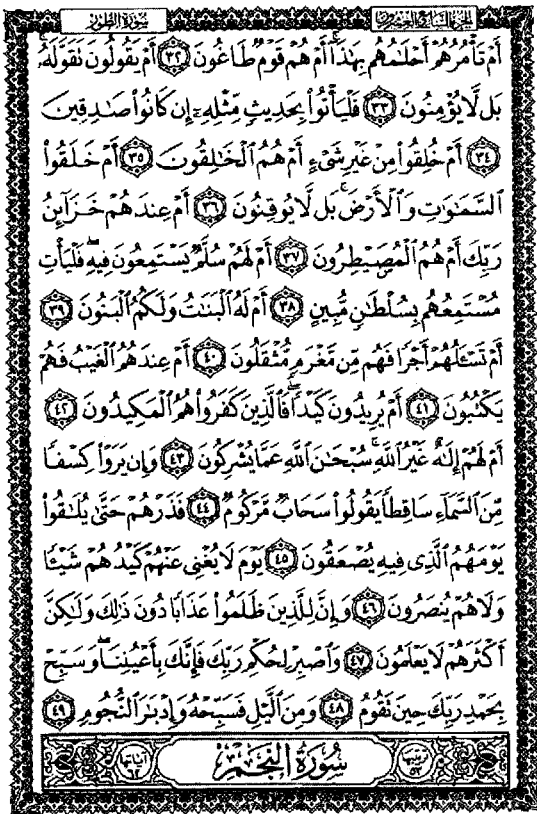 الجزء السابع والعشرون
سورة الطور
أَمْ تَأْمُرُهُمْ أَحْلَـٰمُهُم بِهَـٰذَآ أَمْ هُمْ قَوْمٌ طَاغُونَ ٣٢ أَمْ يَقُولُونَ تَقَوَّلَهُۥ
بَل لَّا يُؤْمِنُونَ ٣٣ فَلْيَأْتُوا۟ بِحَدِيثٍ مِّثْلِهِۦٓ إِن كَانُوا۟ صَـٰدِقِينَ
٣٤ أَمْ خُلِقُوا۟ مِنْ غَيْرِ شَىْءٍ أَمْ هُمُ ٱلْخَـٰلِقُونَ ٣٥ أَمْ خَلَقُوا۟
ٱلسَّمَـٰوَٰتِ وَٱلْأَرْضَ ۚ بَل لَّا يُوقِنُونَ ٣٦ أَمْ عِندَهُمْ خَزَآئِنُ
رَبِّكَ أَمْ هُمُ ٱلْمُصَۣيْطِرُونَ ٣٧ أَمْ لَهُمْ سُلَّمٌ يَسْتَمِعُونَ فِيهِ ۖ فَلْيَأْتِ
مُسْتَمِعُهُم بِسُلْطَـٰنٍ مُّبِينٍ ٣٨ أَمْ لَهُ ٱلْبَنَـٰتُ وَلَكُمُ ٱلْبَنُونَ ٣٩
أَمْ تَسْـَٔلُهُمْ أَجْرًا فَهُم مِّن مَّغْرَمٍ مُّثْقَلُونَ ٤٠ أَمْ عِندَهُمُ ٱلْغَيْبُ فَهُمْ
يَكْتُبُونَ ٤١ أَمْ يُرِيدُونَ كَيْدًا ۖ فَٱلَّذِينَ كَفَرُوا۟ هُمُ ٱلْمَكِيدُونَ ٤٢
أَمْ لَهُمْ إِلَـٰهٌ غَيْرُ ٱللَّهِ ۚ سُبْحَـٰنَ ٱللَّهِ عَمَّا يُشْرِكُونَ ٤٣ وَإِن يَرَوْا۟ كِسْفًا
مِّنَ ٱلسَّمَآءِ سَاقِطًا يَقُولُوا۟ سَحَابٌ مَّرْكُومٌ ٤٤ فَذَرْهُمْ حَتَّىٰ يُلَـٰقُوا۟
يَوْمَهُمُ ٱلَّذِى فِيهِ يُصْعَقُونَ ٤٥ يَوْمَ لَا يُغْنِى عَنْهُمْ كَيْدُهُمْ شَيْـًٔا
وَلَا هُمْ يُنصَرُونَ ٤٦ وَإِنَّ لِلَّذِينَ ظَلَمُوا۟ عَذَابًا دُونَ ذَٰلِكَ وَلَـٰكِنَّ
أَكْثَرَهُمْ لَا يَعْلَمُونَ ٤٧ وَٱصْبِرْ لِحُكْمِ رَبِّكَ فَإِنَّكَ بِأَعْيُنِنَا ۖ وَسَبِّحْ
بِحَمْدِ رَبِّكَ حِينَ تَقُومُ ٤٨ وَمِنَ ٱلَّيْلِ فَسَبِّحْهُ وَإِدْبَـٰرَ ٱلنُّجُومِ ٤٩
ترتيبها ٥٣ سُورَةُ النَّجْمِ آياتها ٦٢